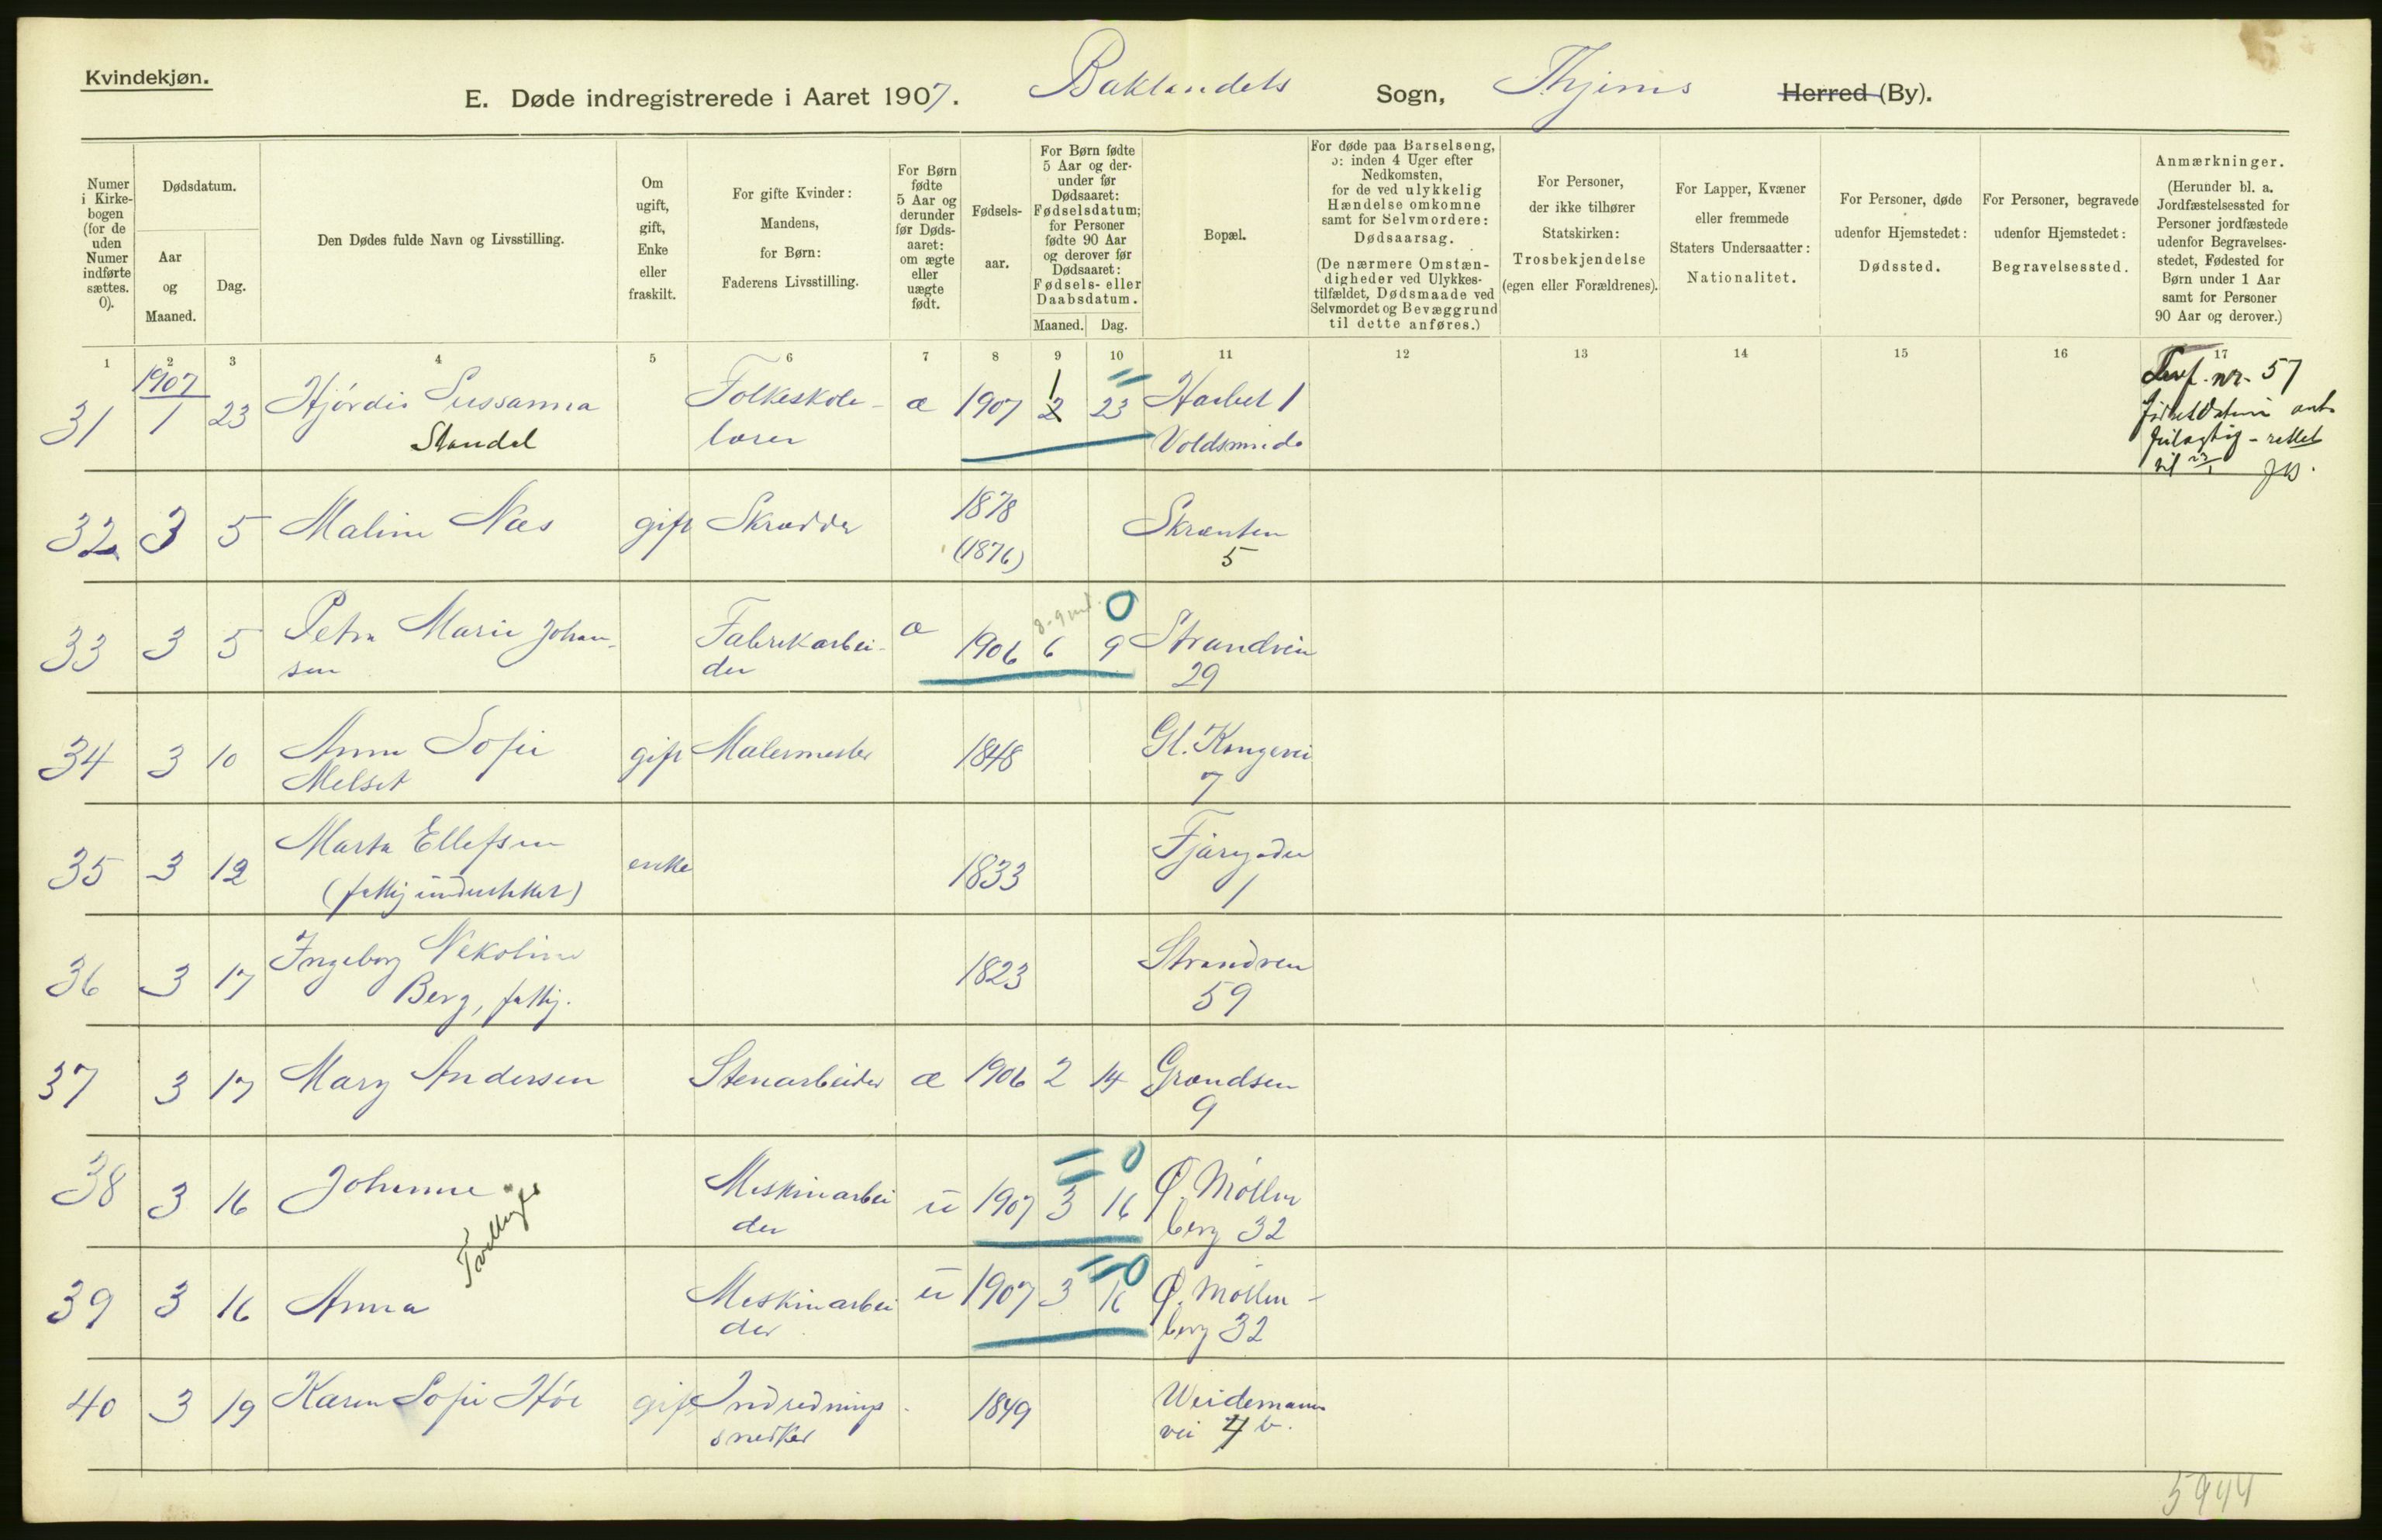 Kvindekjøn.
E. Døde indregistrerede i Aaret 1907. Baklandets Sogn, Thjems Herred (By).
Numer i Kirkebogen (for de uden Numer indførte sættes. 0).
Dødsdatum.
Aar og Maaned.
Dag.
Den Dødes fulde Navn og Livsstilling.
Om ugift, gift, Enke eller fraskilt.
For gifte Kvinder: Mandens, for Børn: Faderens Livsstilling.
For Børn fødte 5 Aar og derunder før Dødsaaret: om ægte eller uægte født.
Fødselsaar.
For Børn fødte 5 Aar og derunder før Dødsaaret: Fødselsdatum; for Personer fødte 90 Aar og derover før Dødsaaret: Fødsels- eller Daabsdatum.
Maaned. Dag.
Bopæl.
For døde paa Barselseng, ɔ: inden 4 Uger efter Nedkomsten, for de ved ulykkelig Hændelse omkomne samt for Selvmordere: Dødsaarsag. (De nærmere Omstændigheder ved Ulykkestilfældet, Dødsmaade ved Selvmordet og Bevæggrund til dette anføres.)
For Personer, der ikke tilhører Statskirken: Trosbekjendelse (egen eller Forældrenes).
For Lapper, Kvæner eller fremmede Staters Undersaatter: Nationalitet.
For Personer, døde udenfor Hjemstedet: Dødssted.
For Personer, begravede udenfor Hjemstedet: Begravelsessted.
Anmærkninger. (Herunder bl. a. Jordfæstelsessted for Personer jordfæstede udenfor Begravelsesstedet, Fødested for Børn under 1 Aar samt for Personer 90 Aar og derover.)
1 2 3 4 5 6 7 8 9 10 11 12 13 14 15 16 17
1907
31 1 23 Hjørdis Sussanna Folkeskole- æ 1907 2 1 23 Harbet 1 nr. 57
Standal lærer Voldsminde rettet til 23/1
32 3 5 Maline Næs gift Skrædder 1878 Skrænten
(1876) 5
33 3 5 Petra Marie Johan- Fabrikarbei- æ 1906 6 9 Strandvein
sen der 29
8-9 md. 0
34 3 10 Anna Sofie gift Malermester 1848 Gl. Kongevei
Melset 7
35 3 12 Marta Ellefsen enke 1833 Fjæregaden
(fattigunderstøttet) 1
36 3 17 Ingeborg Nekoline 1823 Strandvein
Berg, fattig. 59
37 3 17 Mary Andersen Stenarbeider æ 1906 2 14 Grændsen
9
38 3 16 Johanne Maskinarbei u 1907 3 16 Ø. Møllen
der berg 32
0
Tvillinger
39 3 16 Anna Maskinarbei u 1907 3 16 Ø. Møllen-
der berg 32
0
40 3 19 Karen Sofie Høe gift Indrednings- 1849 Weidemanns
snedker vei 4 b.
5944